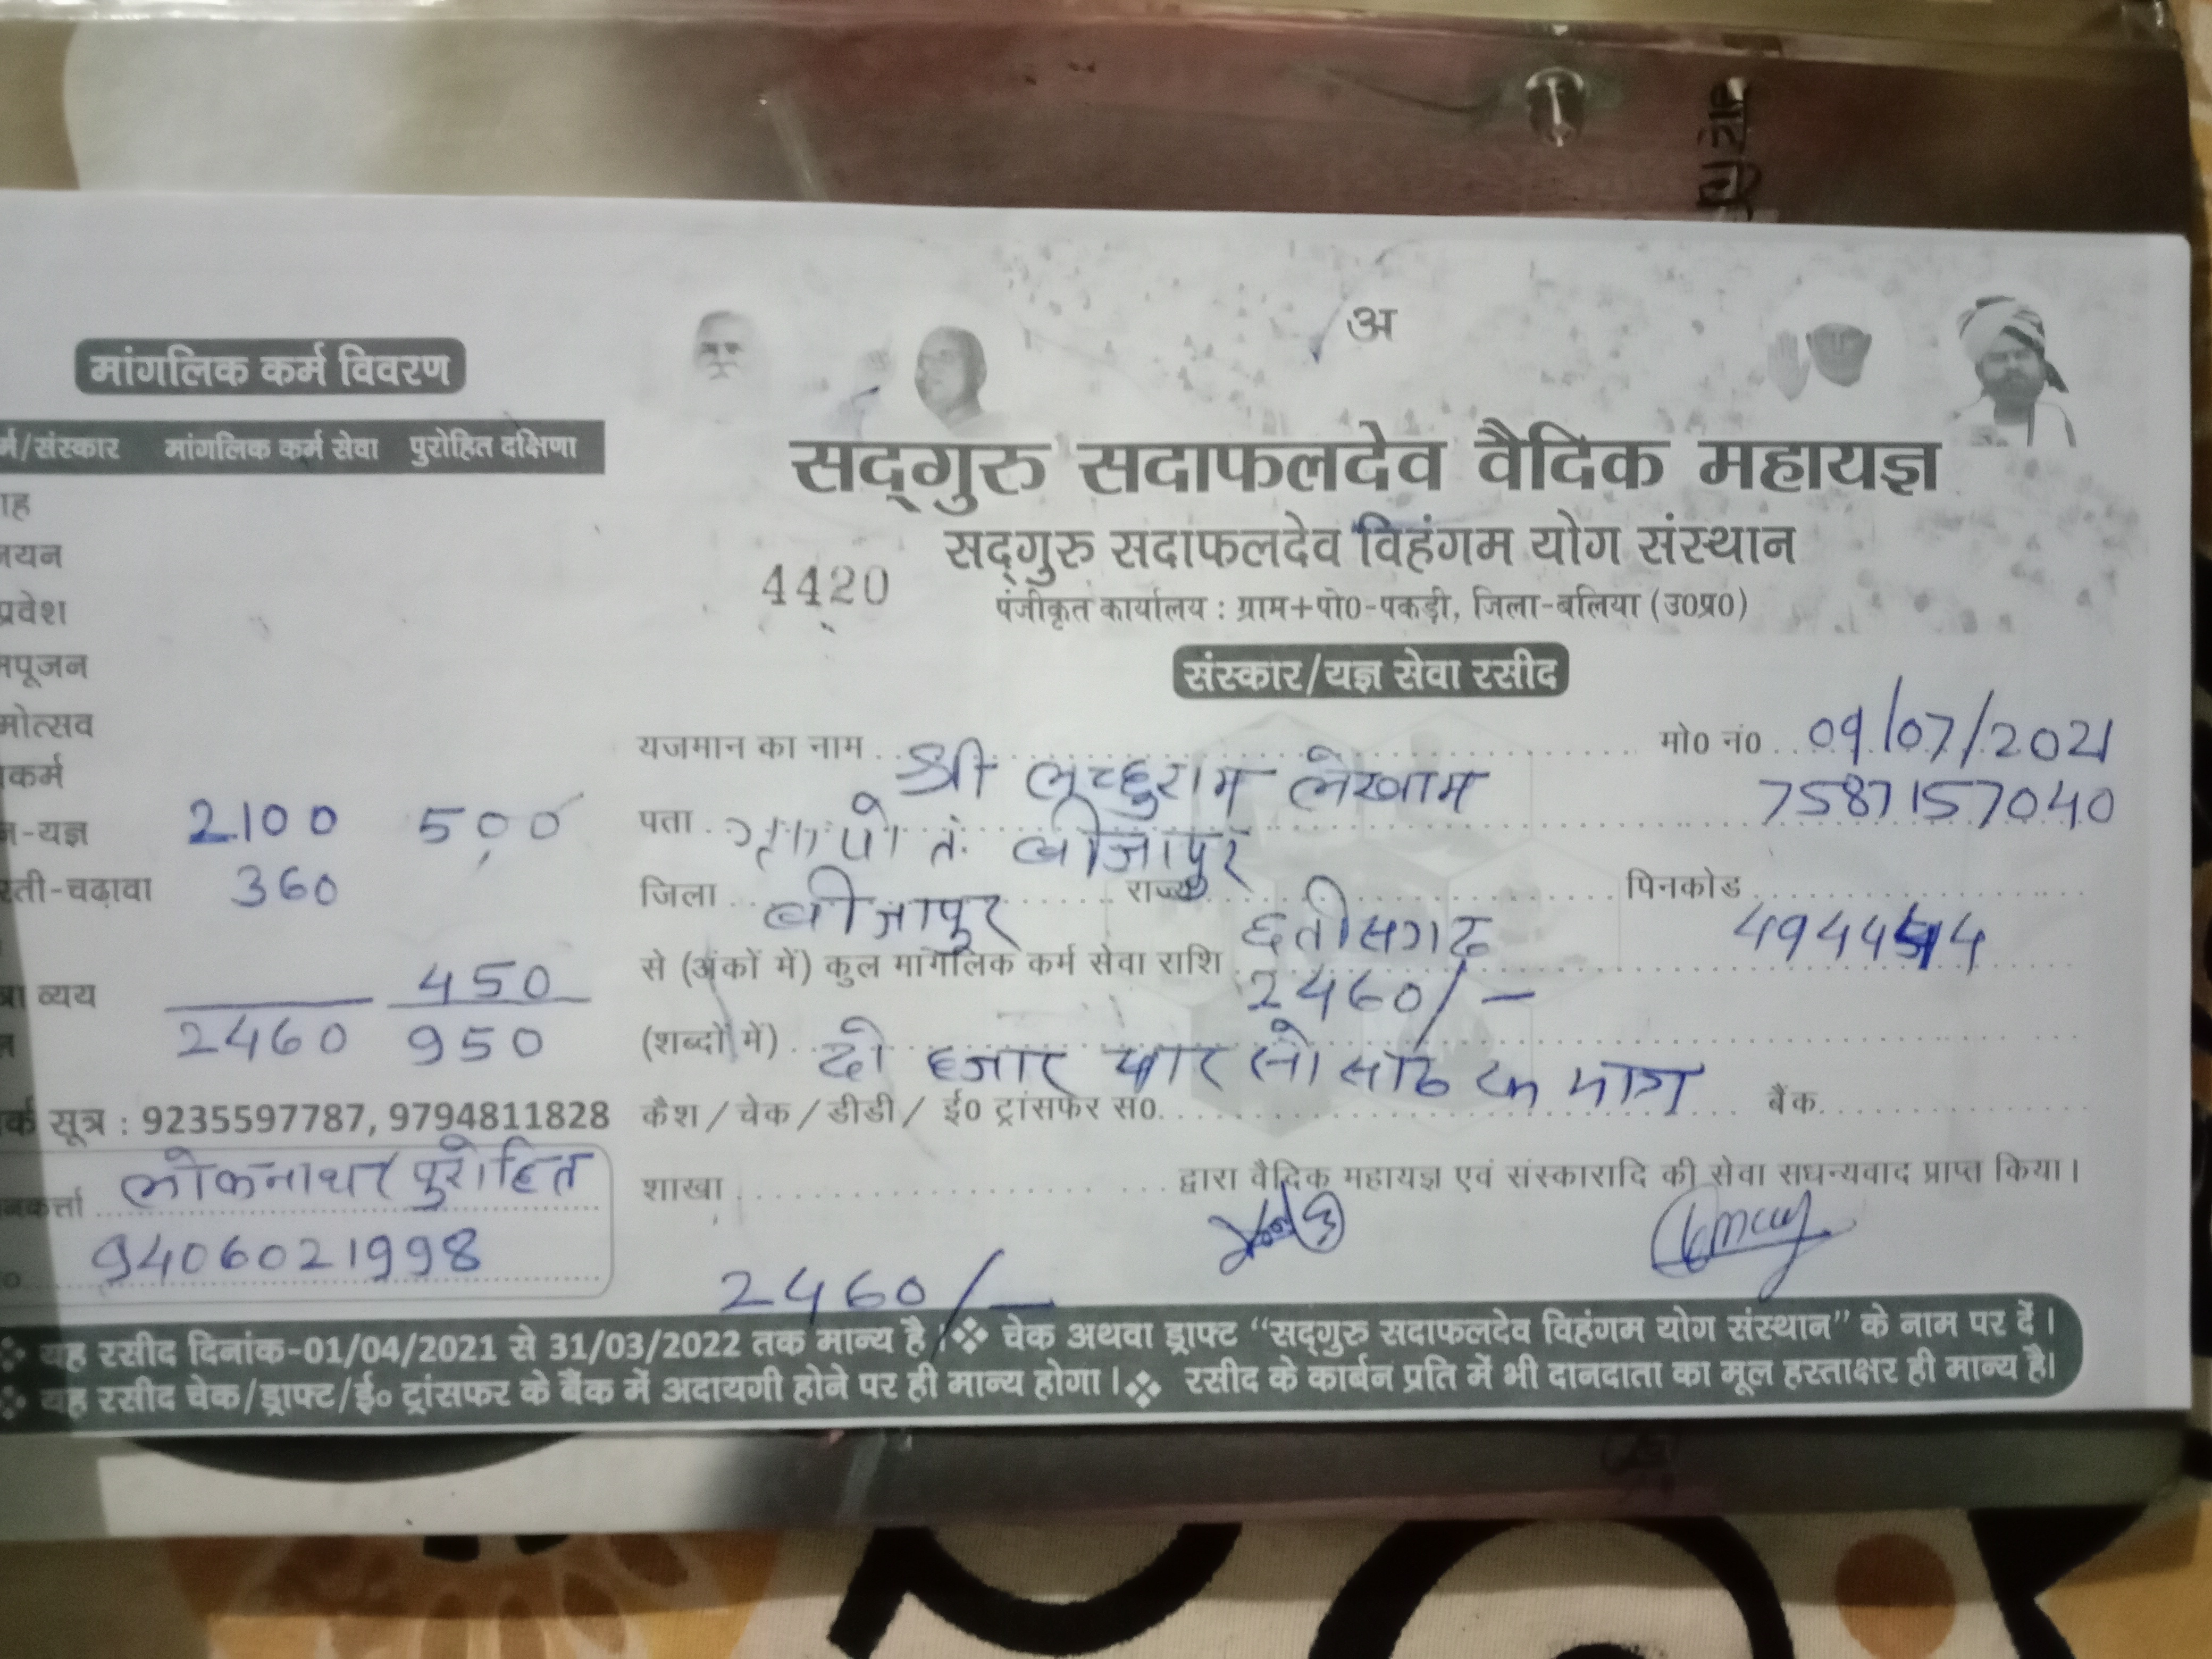 अ
मांगलिक कर्म विवरण
र्म/संस्कार मांगलिक कर्म सेवा पुरोहित दक्षिणा
ाह
नयन
प्रवेश
मपूजन
मोत्सव
कर्म
-यज्ञ 2100 500
रती-चढ़ावा 360
त्रा व्यय 450
2460 950
र्क सूत्र : 9235597787, 9794811828
लोकनाथ पुरोहित
नकर्त्ता
9406021998
सद्गुरु सदाफलदेव वैदिक महायज्ञ
सद्गुरु सदाफलदेव विहंगम योग संस्थान
4420
पंजीकृत कार्यालय : ग्राम+पो0-पकड़ी, जिला-बलिया (उ0प्र0)
संस्कार/यज्ञ सेवा रसीद
यजमान का नाम श्री लच्छुराम लेखाम मो0 नं0 09/07/2021
7587157040
पता पो बीजापुर
जिला बीजापुर राज्य छत्तीसगढ़ पिनकोड
से (अंकों में) कुल मांगलिक कर्म सेवा राशि 2460/-
(शब्दों में) दो हजार चार सौ साठ रू मात्र
कैश / चेक / डीडी / ई0 ट्रांसफर स0. बैंक
शाखा द्वारा वैदिक महायज्ञ एवं संस्कारादि की सेवा सधन्यवाद प्राप्त किया।
2460/-
❖ यह रसीद दिनांक-01/04/2021 से 31/03/2022 तक मान्य है। ❖ चेक अथवा ड्राफ्ट “सद्गुरु सदाफलदेव विहंगम योग संस्थान” के नाम पर दें।
❖ यह रसीद चेक/ड्राफ्ट/ई० ट्रांसफर के बैंक में अदायगी होने पर ही मान्य होगा। ❖ रसीद के कार्बन प्रति में भी दानदाता का मूल हस्ताक्षर ही मान्य है।